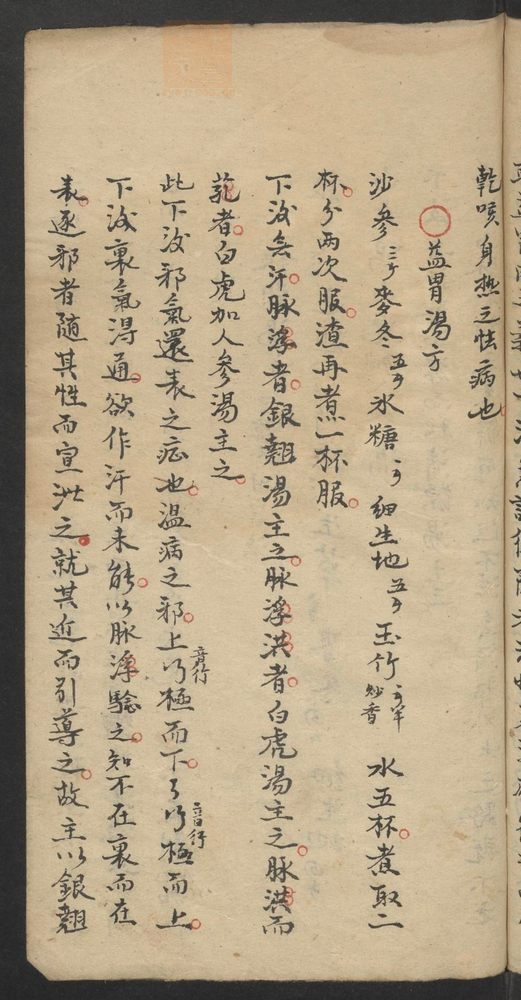 乾咳身熱之怯病也
益胃湯方
沙參三夕麥冬五夕氷糖一夕細生地五夕玉竹一夕半炒香 水五杯煮取二
杯分兩次服渣再煮一杯服
下後無汗脉浮者銀翹湯主之脉浮洪者白虎湯主之脉洪而
芤者白虎加人參湯主之
此下後邪氣還表之症也溫病之邪上行極而下下行極而上
音行
音行
下後裏氣淂通欲作汗而未能以脉浮驗之知不在裏而在
表逐邪者随其性而宣泄之就其近而引導之故主以銀翹